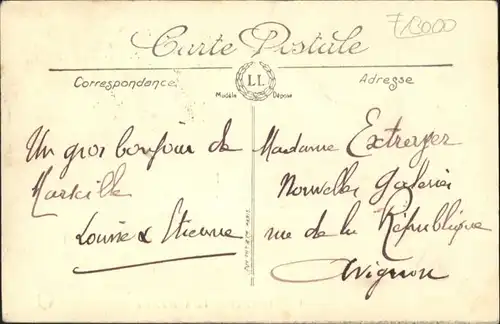 F 13000
Carte Postale
Correspondance
LL
Adresse
Modèle Déposé
Un gros bonjour de
Marseille
Louise & Etienne
Madame Extroyer
Nouvelles Galeries
rue de la République
Avignon